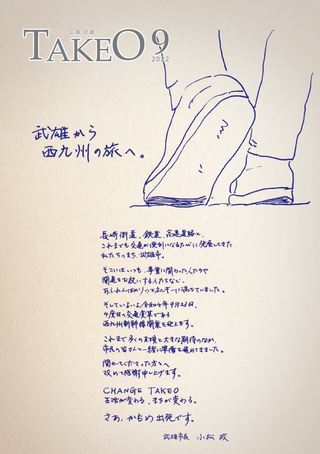 広報 武雄
TAKEO 9
2022
武雄から
西九州の旅へ。
長崎街道、鉄道、高速道路と、
これまでも交通が便利になるたびに発展してきた
私たちのまち、武雄市。
そこにはいつも、事業に関わった人たちや
開通をお祝いする人たちなど、
あふれんばかりのエネルギーに満ちていました。
そしていよいよ令和4年9月23日、
4度目の交通変革である
西九州新幹線開業を迎えます。
これまで多くの支援と大きな期待のなか、
市民の皆さんと一緒に準備を進めてきました。
関わってくださった方々へ
改めて感謝申し上げます。
CHANGE TAKEO
主役が変わる、まちが変わる。
さあ、かもめ出発です。
武雄市長 小松 政